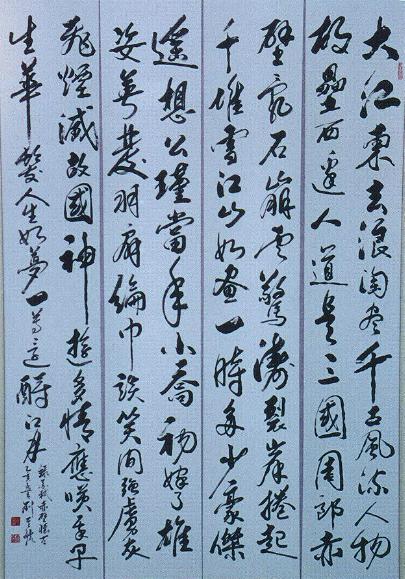 大江東去浪淘尽千古風流人物
故壘西邊人道是三國周郎赤
壁亂石崩雲驚濤裂岸捲起
千堆雪江山如畫一時多少豪傑
遙想公瑾當年小喬初嫁了雄
姿英發羽扇綸巾談笑間強虜灰
飛煙滅故國神遊多情應笑我早
生華髮人生如夢一尊還酹江月
赤壁懷古